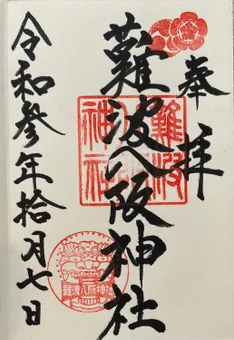 奉拝
難波八阪神社
令和参年拾月七日
難波八阪神社
難波八阪神社